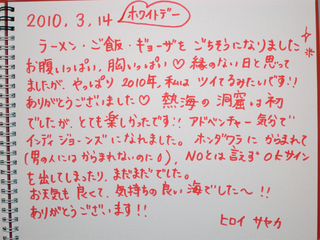 2010.3.14 ホワイトデー
ラーメン・ご飯・ギョーザをごちそうになりました
お腹いっぱい、胸いっぱい♡ 縁のない日と思って
ましたが、やっぱり2010年、私はツイてるみたいです!!
ありがとうございました♡ 熱海の洞窟は初
でしたが、とても楽しかったです!! アドベンチャー気分で
インディジョーンズになれました。ホンダワラにからまれて
(男の人にはからまれないのに), NOとは言えずOKサイン
を出してしまったり、まだまだでした。
お天気も良くて、気持ちの良い海でした〜!!
ありがとうございます!!
ヒロイ サヤカ